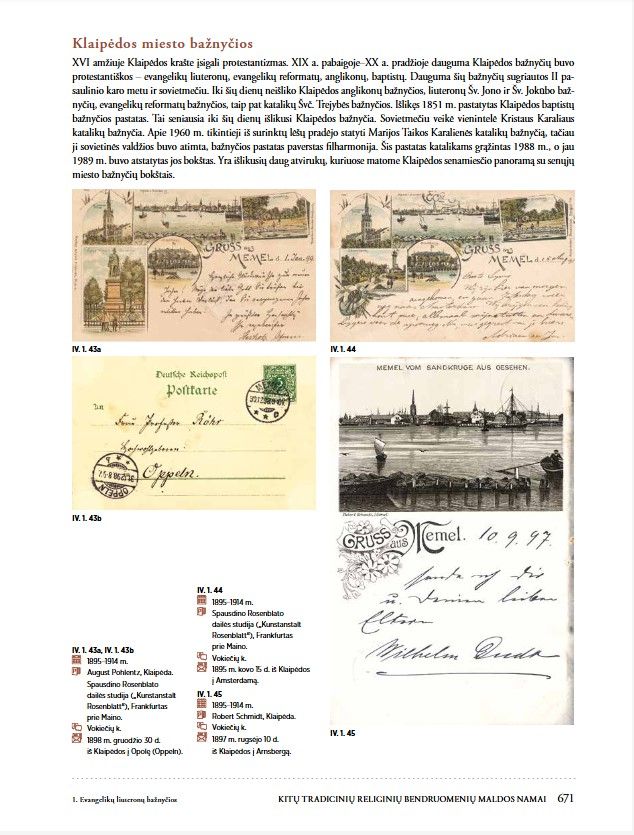 Klaipėdos miesto bažnyčios
XVI amžiuje Klaipėdos krašte įsigali protestantizmas. XIX a. pabaigoje–XX a. pradžioje dauguma Klaipėdos bažnyčių buvo
protestantiškos – evangelikų liuteronų, evangelikų reformatų, anglikonų, baptistų. Dauguma šių bažnyčių sugriautos II pa-
saulinio karo metu ir sovietmečiu. Iki šių dienų neišliko Klaipėdos anglikonų bažnyčios, liuteronų Šv. Jono ir Šv. Jokūbo baž-
nyčių, evangelikų reformatų bažnyčios, taip pat katalikų Švč. Trejybės bažnyčios. Išlikęs 1851 m. pastatytas Klaipėdos baptistų
bažnyčios pastatas. Tai seniausia iki šių dienų išlikusi Klaipėdos bažnyčia. Sovietmečiu veikė vienintelė Kristaus Karaliaus
katalikų bažnyčia. Apie 1960 m. tikintieji iš surinktų lėšų pradėjo statyti Marijos Taikos Karalienės katalikų bažnyčią, tačiau
ji sovietinės valdžios buvo atimta, bažnyčios pastatas paverstas filharmonija. Šis pastatas katalikams grąžintas 1988 m., o jau
1989 m. buvo atstatytas jos bokštas. Yra išlikusių daug atvirukų, kuriuose matome Klaipėdos senamiesčio panoramą su senųjų
miesto bažnyčių bokštais.
GRUSS aus
MEMEL
d. 1. Jan. 99.
IV. 1. 43a
GRUSS aus
MEMEL
IV. 1. 44
Deutsche Reichspost
Postkarte
An
Frau
Röhr
Oppeln.
MEMEL
OPPELN
IV. 1. 43b
MEMEL VOM SANDKRUGE AUS GESEHEN.
GRUSS aus Memel. 10. 9. 97.
sende ich dir
u. Deinen lieben
Eltern
Wilhelm Duda
IV. 1. 45
IV. 1. 43a, IV. 1. 43b
1895–1914 m.
August Pohlentz, Klaipėda.
Spausdino Rosenblato
dailės studija („Kunstanstalt
Rosenblatt“), Frankfurtas
prie Maino.
Vokiečių k.
1898 m. gruodžio 30 d.
iš Klaipėdos į Opolę (Oppeln).
IV. 1. 44
1895–1914 m.
Spausdino Rosenblato
dailės studija („Kunstanstalt
Rosenblatt“), Frankfurtas
prie Maino.
Vokiečių k.
1895 m. kovo 15 d. iš Klaipėdos
į Amsterdamą.
IV. 1. 45
1895–1914 m.
Robert Schmidt, Klaipėda.
Vokiečių k.
1897 m. rugsėjo 10 d.
iš Klaipėdos į Arnsbergą.
1. Evangelikų liuteronų bažnyčios
KITŲ TRADICINIŲ RELIGINIŲ BENDRUOMENIŲ MALDOS NAMAI 671